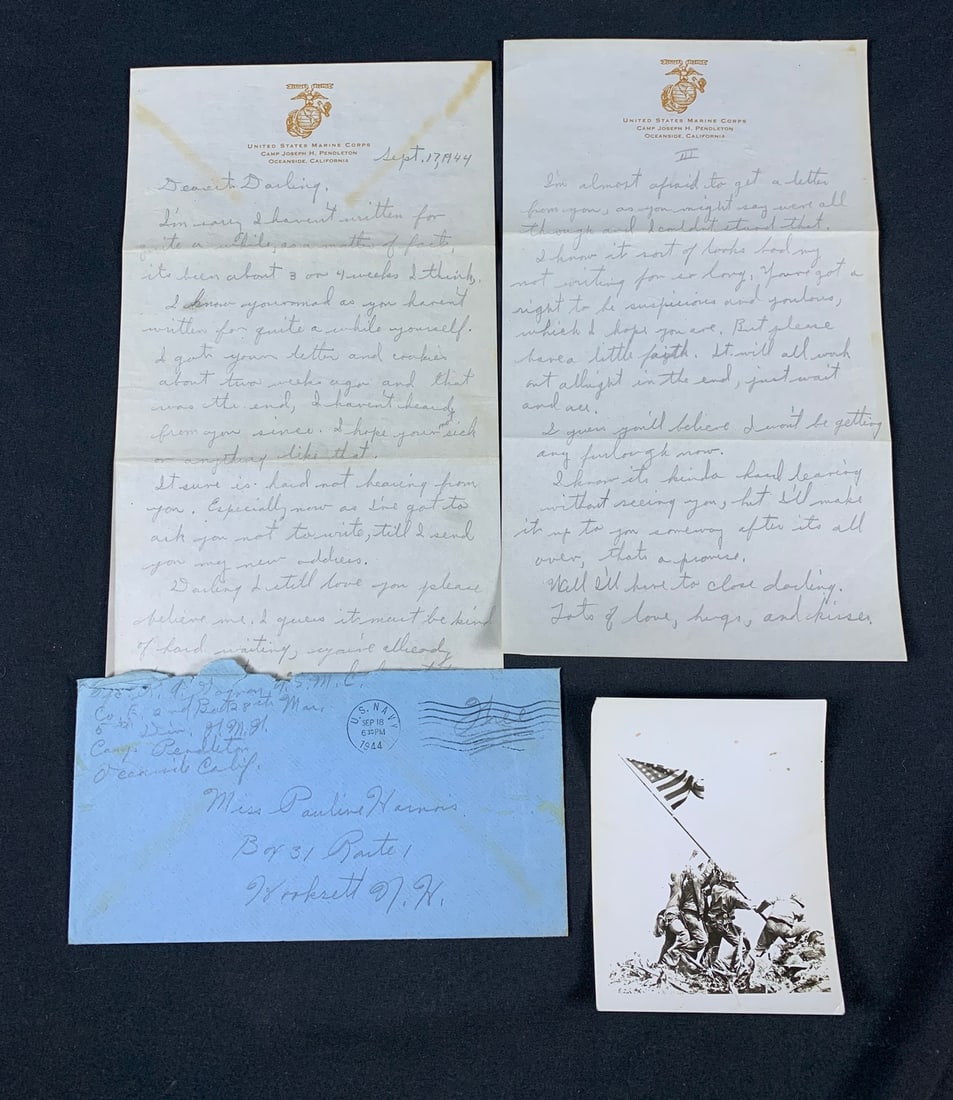 UNITED STATES MARINE CORPS
CAMP JOSEPH H. PENDLETON
OCEANSIDE, CALIFORNIA
Sept. 17, 1944
Dearest Darling,
I'm sorry I haven't written for
quite a while, as a matter of fact,
its been about 3 or 4 weeks I think.
I know your mad as you haven't
written for quite a while yourself.
I got your letter and cookies
about two weeks ago and that
was the end, I haven't heard
from you since. I hope your not sick
or anything like that.
It sure is hard not hearing from
you. Especially now as I've got to
ask you not to write, till I send
you my new address.
Darling I still love you please
believe me. I guess it must be kind
of hard waiting,
UNITED STATES MARINE CORPS
CAMP JOSEPH H. PENDLETON
OCEANSIDE, CALIFORNIA
III
I'm almost afraid to get a letter
from you, as you might say were all
though and I couldn't stand that.
I know it sort of looks bad my
not writing for so long, You've got a
right to be suspicious and
which I hope you are. But please
have a little faith. It will all work
out allright in the end, just wait
and see.
I guess you'll believe I won't be getting
any furlough now.
I know its kinda hard leaving
without seeing you, but I'll make
it up to you someway after its all
over, thats a promise.
Well I'll have to close darling.
Lots of love, hugs, and kisses,
U.S.M.C.
Co. 2nd Bat 28th Mar.
5th Div.
Camp Pendleton
Oceanside Calif.
U.S. NAVY
SEP 18
PM
1944
Free
Miss Pauline Harnois
Box 31 Route 1
Hooksett N.H.